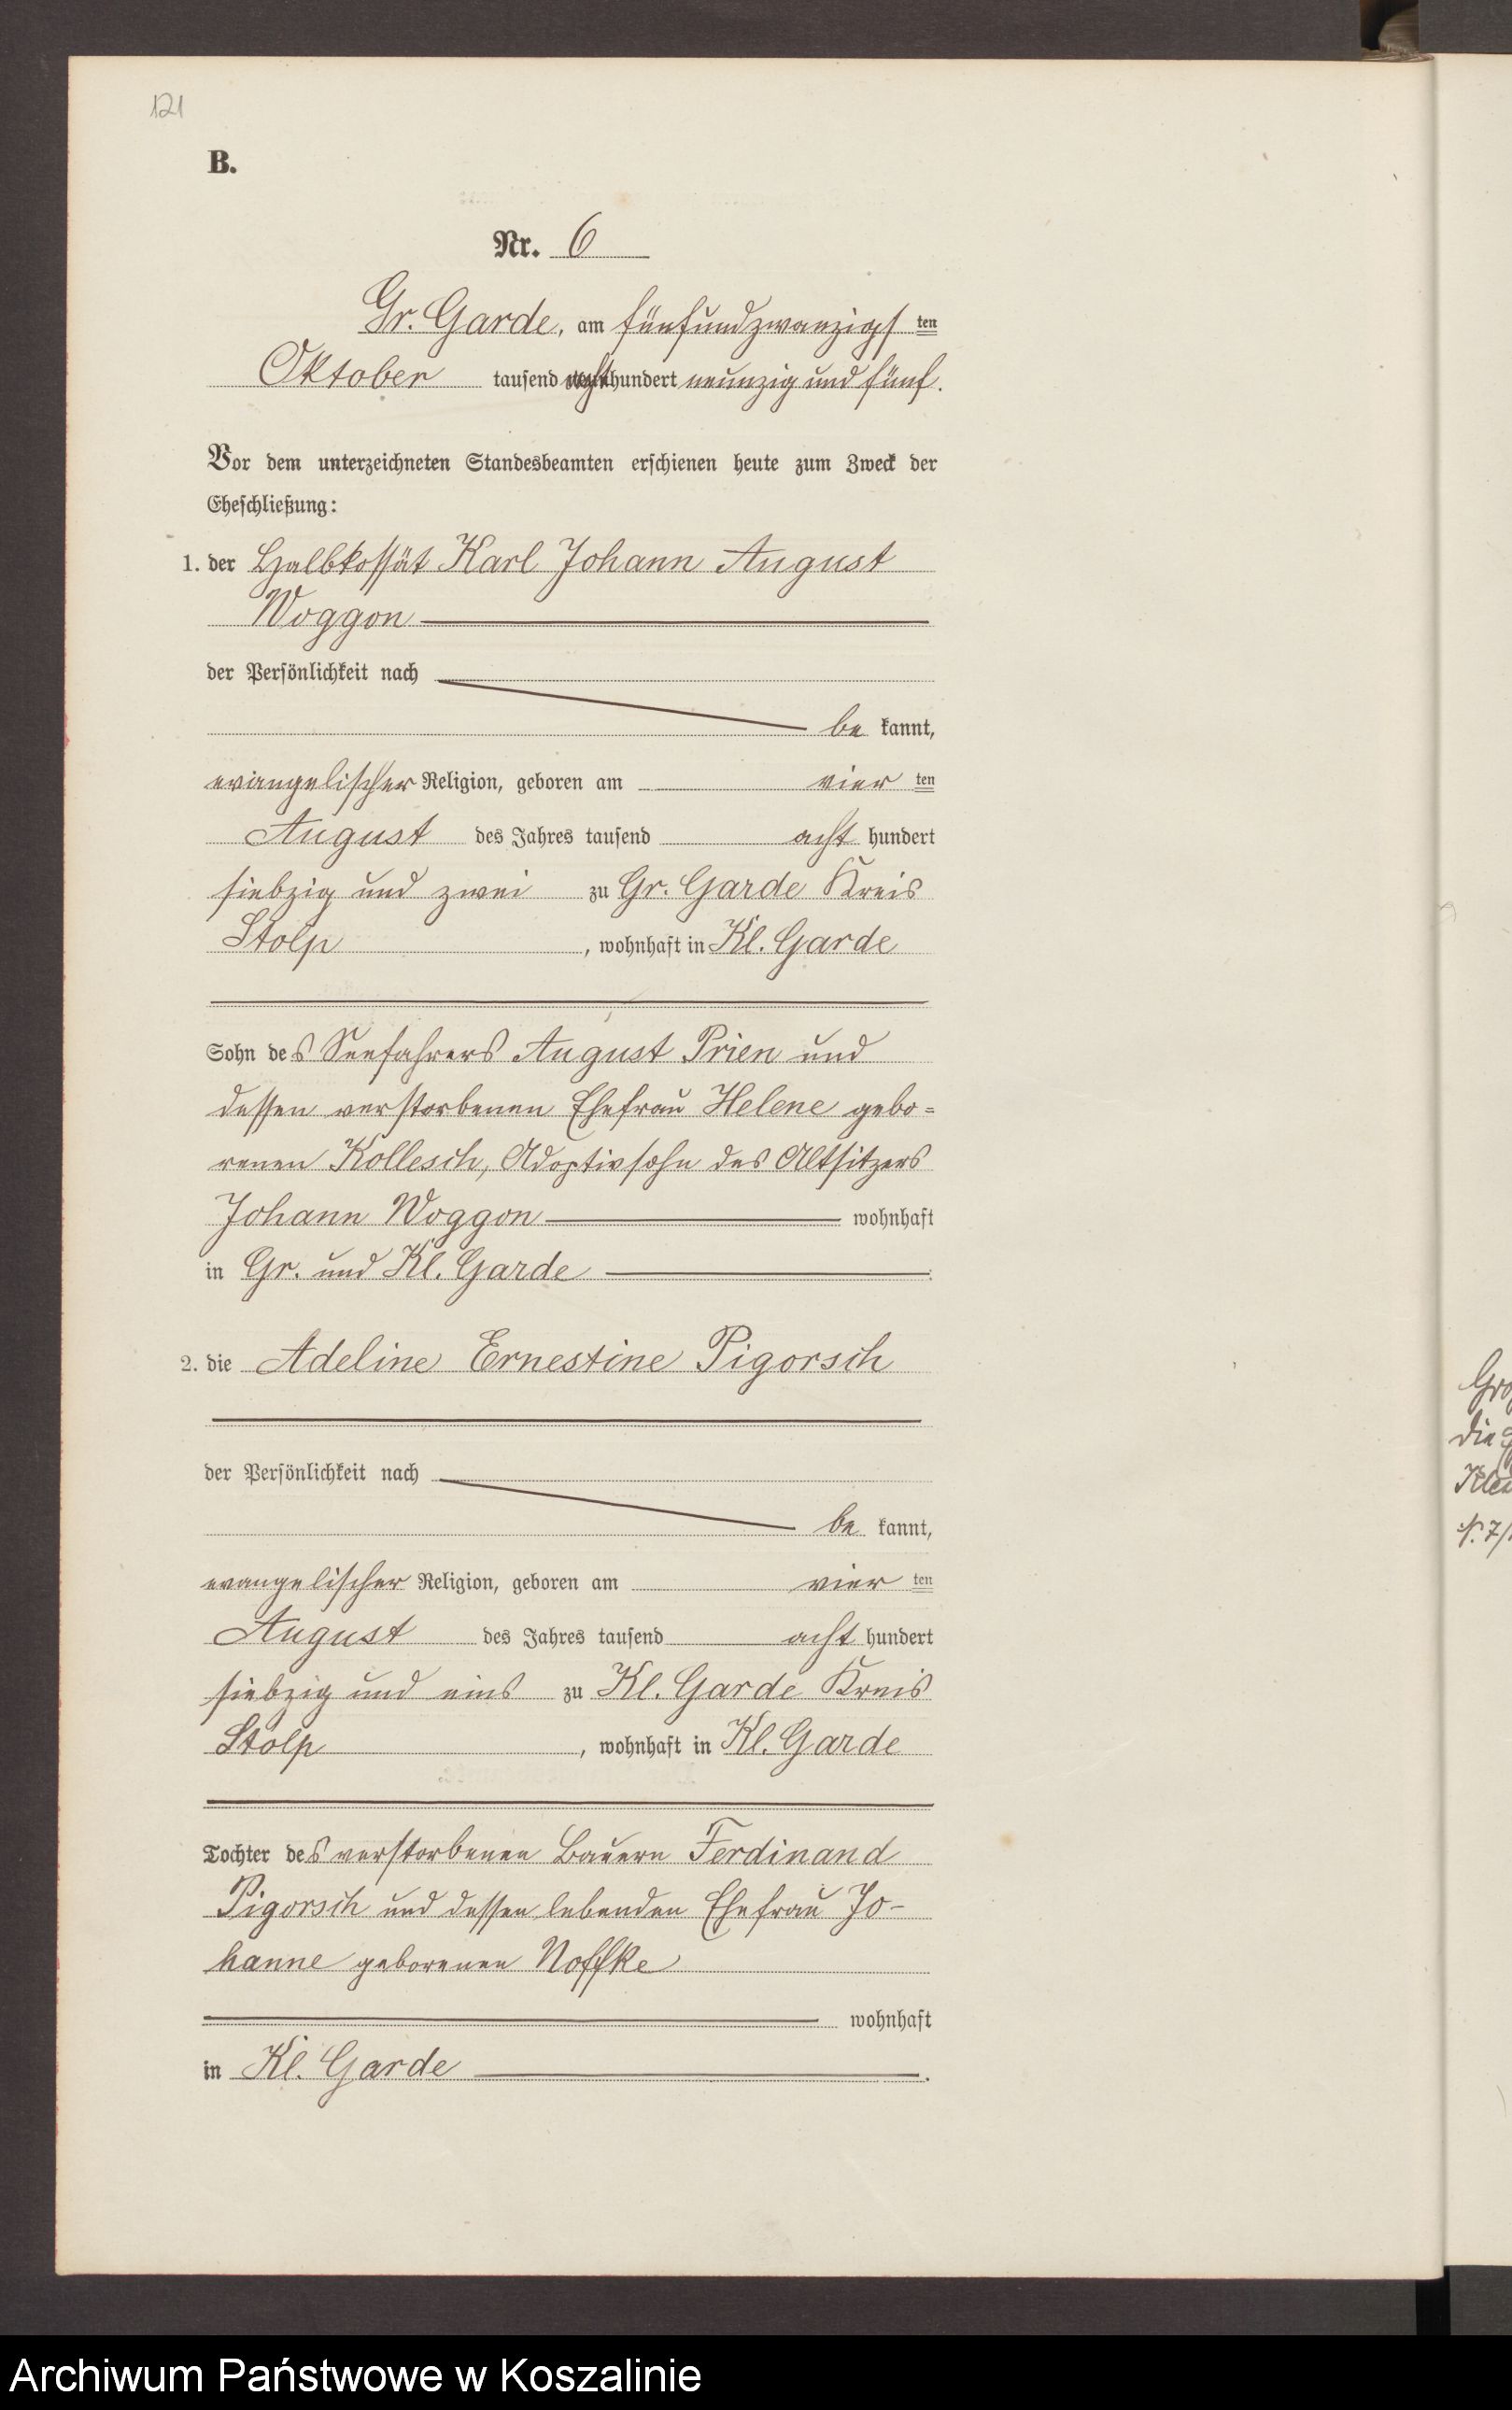 121
B.
Nr. 6
Gr. Garde, am fünfundzwanzigsten
Oktober tausend achthundert neunzig und fünf.
Vor dem unterzeichneten Standesbeamten erschienen heute zum Zweck der
Eheschließung:
1. der Halbkossät Karl Johann August
Woggon
der Persönlichkeit nach
be kannt,
evangelischer Religion, geboren am vier ten
August des Jahres tausend acht hundert
siebzig und zwei zu Gr. Garde Kreis
Stolp , wohnhaft in Kl. Garde
Sohn des Seefahrers August Prien und
dessen verstorbenen Ehefrau Helene gebo=
renen Kollesch, Adoptivsohn des Altsitzers
Johann Woggon wohnhaft
in Gr. und Kl. Garde
2. die Adeline Ernestine Pigorsch
der Persönlichkeit nach
be kannt,
evangelischer Religion, geboren am vier ten
August des Jahres tausend acht hundert
siebzig und eins zu Kl. Garde Kreis
Stolp , wohnhaft in Kl. Garde
Tochter des verstorbenen Bauern Ferdinand
Pigorsch und dessen lebenden Ehefrau Jo-
hanne geborenen Noffke
wohnhaft
in Kl. Garde .
Archiwum Państwowe w Koszalinie